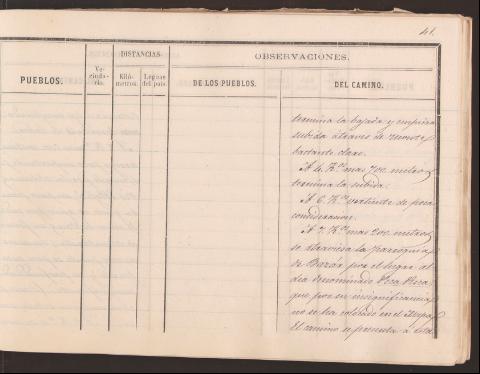 41.
DISTANCIAS
OBSERVACIONES.
PUEBLOS.
Ve-
cinda-
rio.
Kiló-
metros.
Leguas
del país.
DE LOS PUEBLOS.
DEL CAMINO.
termina la bajada y empieza
subida á traves de monte
bastante claro.
A 4. K.os mas 700. metros
termina la subida.
A 6. K.os vertiente de poca
consideracion.
A 7. K.os mas 200. metros
se atraviesa la parroquia
de Bazár, por el lugar al
dia denominado
que por su insignificancia
no se ha colocado en el Mapa
El camino se presenta á